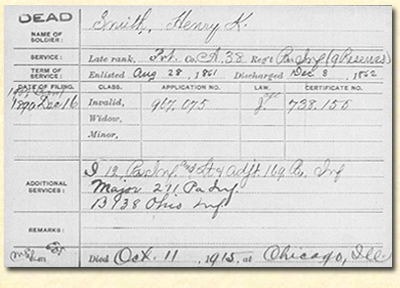 DEAD
NAME OF SOLDIER:
Smith, Henry K.
SERVICE:
Late rank, Pvt. Co. A, 38 Reg't Pa Inf (9 Reserves)
TERM OF SERVICE:
Enlisted Aug 28, 1861 Discharged Dec 8, 1862
DATE OF FILING. CLASS. APPLICATION NO. LAW. CERTIFICATE NO.
1890 Dec 16 Invalid, 967,075 738.155
Widow,
Minor,
ADDITIONAL SERVICES:
I 12 Pa Inf, Adjt. 169 Pa. Inf
Major 211 Pa Inf.
B 138 Ohio Inf
REMARKS:
Died Oct. 11, 1915, at Chicago, Ill.